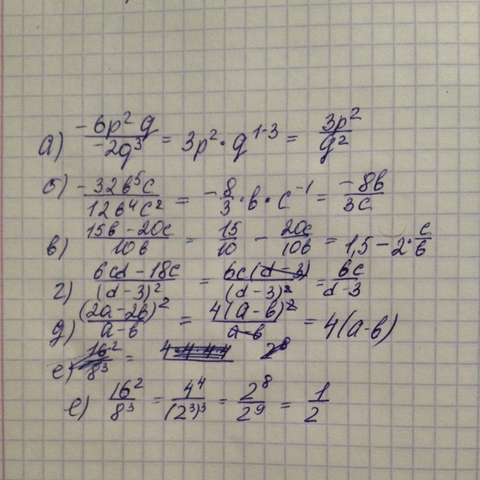 а) -6p² g / -2g³ = 3p² · g¹⁻³ = 3p² / g²
б) -32b⁵c / 12b⁴c² = -8/3 · b · c⁻¹ = -8b / 3c
в) 15b - 20c / 10b = 15/10 - 20c/10b = 1,5 - 2 · c/b
г) 6cd - 18c / (d-3)² = 6c(d-3) / (d-3)² = 6c / d-3
д) (2a-2b)² / a-b = 4(a-b)² / a-b = 4(a-b)
е) 16² / 8³ = 4·4·4·4 2⁸
е) 16² / 8³ = 4⁴ / (2³)³ = 2⁸ / 2⁹ = 1/2